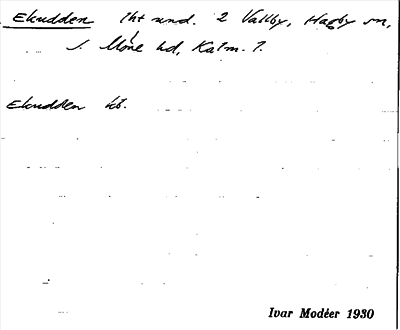 Ekudden lht und. 2 Vallby, Hagby sn,
S. Möre hd, Kalm. l.
Ekudden kt.
Ivar Modéer 1930